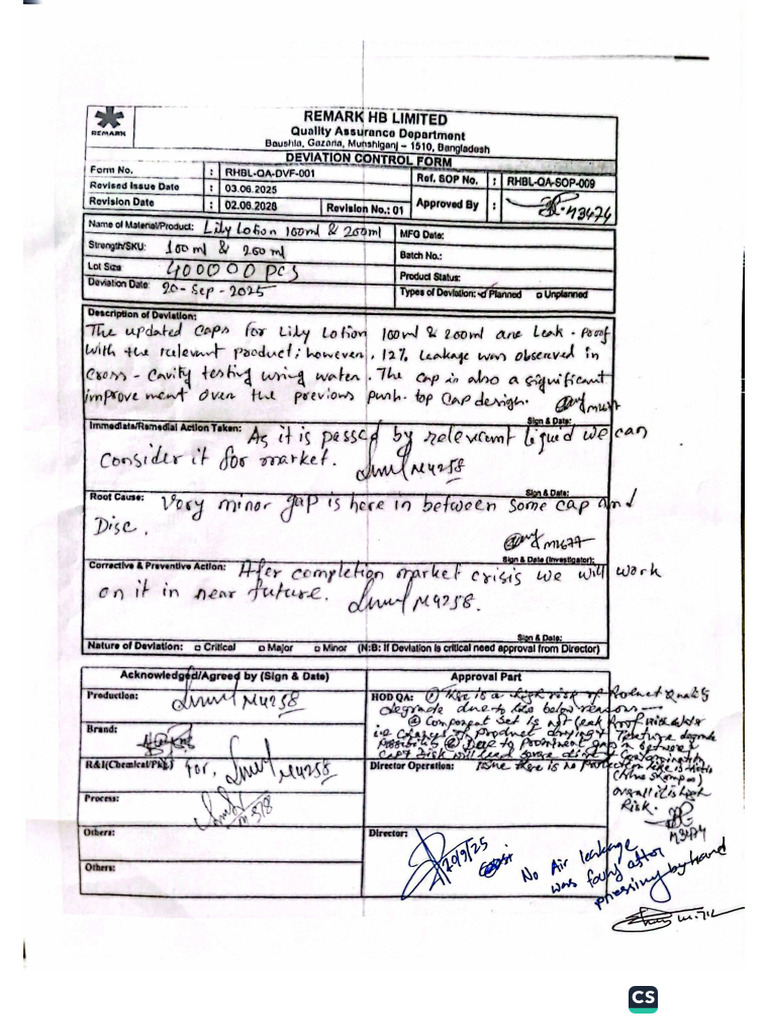 REMARK
REMARK HB LIMITED
Quality Assurance Department
Baushia, Gazaria, Munshiganj – 1510, Bangladesh
DEVIATION CONTROL FORM
Form No. : RHBL-QA-DVF-001
Ref. SOP No. : RHBL-QA-SOP-009
Revised Issue Date : 03.06.2025
Revision Date : 02.06.2028 Revision No.: 01
Approved By : M3474
Name of Material/Product: Lily Lotion 100ml & 200ml
MFG Date:
Strength/SKU: 100ml & 200ml
Batch No.:
Lot Size 400000 pcs
Product Status:
Deviation Date: 20-Sep-2025
Types of Deviation: Planned Unplanned
Description of Deviation:
The updated caps for Lily Lotion 100ml & 200ml are Leak-Proof
with the relevant product; however, 12% leakage was observed in
Cross-Cavity testing using water. The cap is also a significant
improvement over the previous push-top cap design.
Sign & Date:
Immediate/Remedial Action Taken: As it is passed by relevant liquid we can
Consider it for market. M4258
Sign & Date:
Root Cause: Very minor gap is here in between some cap and
Disc.
Sign & Date (Investigator):
Corrective & Preventive Action: After completion market crisis we will work
on it in near future. M4258.
Sign & Date:
Nature of Deviation: Critical Major Minor (N:B: If Deviation is critical need approval from Director)
Acknowledged/Agreed by (Sign & Date)
Approval Part
Production: M4258
HOD QA: ① There is a high risk of Product Quality
degrade due to the below reasons
② Component Set is not Leak Proof
Brand:
R&I(Chemical/Pkg) For, M4258
Director Operation:
overall it is
Risk.
M3474
Process:
Others:
Director: 20/9/25
No Air leakage
was found after
pressing by hand
Others:
CS